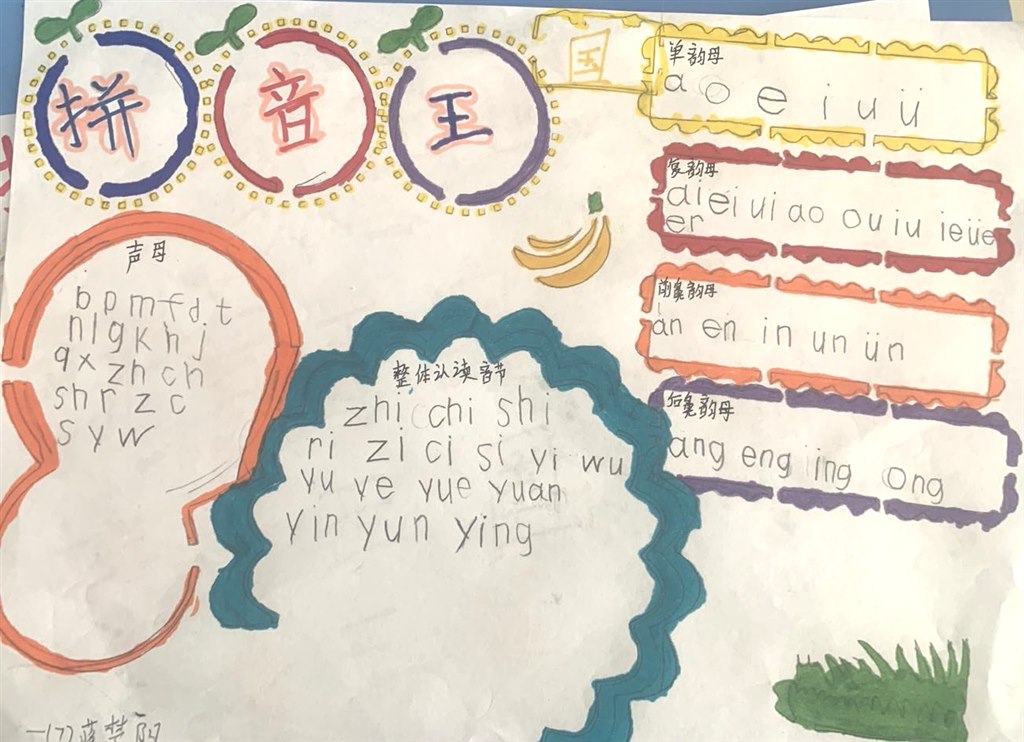 拼音王国
单韵母
a o e i u ü
复韵母
ai ei ui ao ou iu ie üe
er
前鼻韵母
an en in un ün
后鼻韵母
ang eng ing ong
声母
b p m f d t
n l g k h j
q x zh ch
sh r z c
s y w
整体认读音节
zhi chi shi
ri zi ci si yi wu
yu ye yue yuan
yin yun ying
一(7)